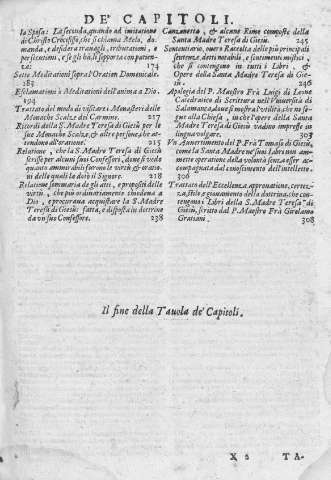 DE' CAPITOLI.
la Sposa: La seconda, quando ad imitatione
di Christo Crocefisso, che si chiama Melo, do-
manda, e desidera travagli, tribulationi, e
persecutioni, e se gli hà, li sopporta con patien-
za: 174
Sette Meditationi sopra l'Oratiom Domenicale.
183
Esclamationi ò Meditationi dell'anima a Dio.
194
Trattato del modo di visitare i Monasteri delle
Monache Scalze del Carmine. 217
Ricordi della S. Madre Teresa di Giesù per le
sue Monache Scalze, & altre persone, che at-
tendono all'oratione. 215
Relatione, che la S. Madre Teresa di Giesù
scrisse per alcuni suoi Confessori, doue si vede
quanto ammirabili furono le virtù & orationi
delle quali la dotò il Signore. 218
Relatione sommaria de gli atti, e propositi delle
virtù, che più ordinariamente chiedeua a
Dio, e procuraua acquistare la S. Madre
Teresa di Giesù: fatta, e disposta in dottrina
da vn suo Confessore. 238
Canzonetta, & alcune Rime composte della
Santa Madre Teresa di Giesù. 245
Sententiario, ouero Raccolta delle più principali
sentenze, detti notabili, e sentimenti mistici,
che si contengono in tutti i Libri, &
Opere della Santa Madre Teresa di Gie-
sù. 246
Apologia del P. Maestro Frà Luigi di Leone
Catedratico di Scrittura nell'Vniuersità di
Salamanca, doue si mostra l'vtilità, che ne se-
gue alla Chiesa, in che l'opere della Santa
Madre Teresa di Giesù vadino impresse in
lingua volgare. 303
Vn Auuertimento del P. Frà Tomaso di Giesù,
come la Santa Madre ne' suoi Libri non am-
mette operatione della volontà senza esser ac-
compagnata dal conoscimento dell'intelletto.
306
Trattato dell'Eccellenza, approuatione, certez-
za, stile, e giouamento della dottrina, che con-
tengono i Libri della S. Madre Teresa di
Giesù, scritto dal P. Maestro Frà Girolamo
Gratiani. 308
Il fine della Tauola de' Capitoli.
X 6 TA-